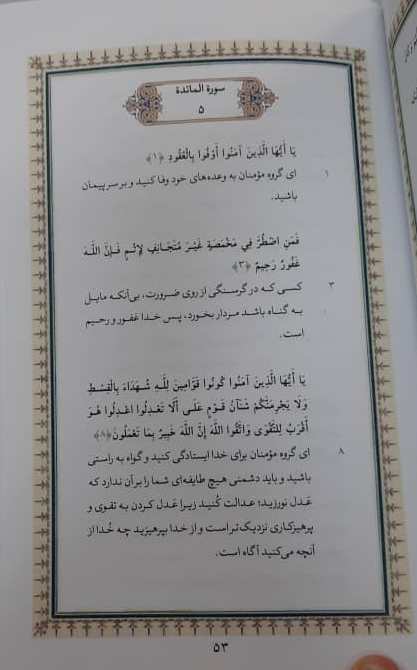 سورة المائدة
۵
یَا أَیُّهَا الَّذِینَ آمَنُوا أَوْفُوا بِالْعُقُودِ ﴿۱﴾
۱ ای گروه مؤمنان به وعده‌های خود وفا کنید و بر سر پیمان
باشید.
فَمَنِ اضْطُرَّ فِي مَخْمَصَةٍ غَيْرَ مُتَجَانِفٍ لِإِثْمٍ فَإِنَّ اللَّهَ
غَفُورٌ رَحِیمٌ ﴿۳﴾
۳ کسی که در گرسنگی از روی ضرورت، بی‌آنکه مایل
به گناه باشد مردار بخورد، پس خدا غفور و رحیم
است.
یَا أَیُّهَا الَّذِینَ آمَنُوا كُونُوا قَوَّامِینَ لِلَّهِ شُهَدَاءَ بِالْقِسْطِ
وَلَا یَجْرِمَنَّكُمْ شَنَآنُ قَوْمٍ عَلَى أَلَّا تَعْدِلُوا اعْدِلُوا هُوَ
أَقْرَبُ لِلتَّقْوَى وَاتَّقُوا اللَّهَ إِنَّ اللَّهَ خَبِیرٌ بِمَا تَعْمَلُونَ ﴿۸﴾
۸ ای گروه مؤمنان برای خدا ایستادگی کنید و گواه به راستی
باشید و باید دشمنی هیچ طایفه‌ای شما را بر آن ندارد که
عَدل نورزید؛ عدالت کُنید زیرا عَدل کردن به تقوی و
پرهیزکاری نزدیک‌تر است و از خدا بپرهیزید چه خُدا از
آنچه می‌کنید آگاه است.
۵۳